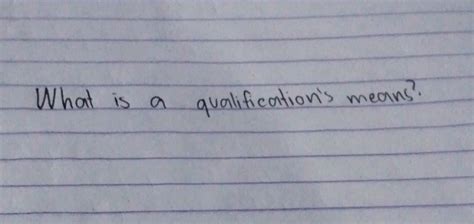 What is a qualification's means?.